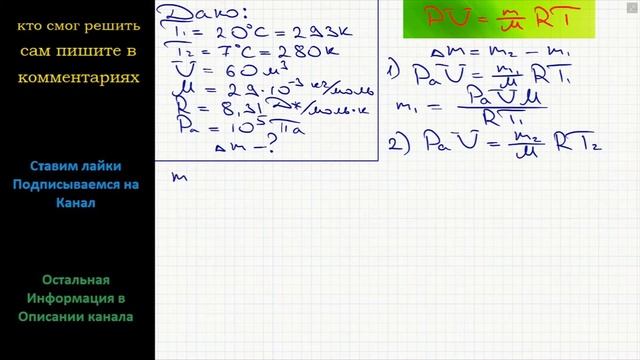 кто смог решить
сам пишите в
комментариях
Ставим лайки
Подписываемся на
Канал
Остальная
Информация в
Описании канала
Дано:
T₁ = 20°C = 293К
T₂ = 7°C = 280К
V = 60 м³
M = 29·10⁻³ кг/моль
R = 8,31 Дж/моль·К
Pa = 10⁵ Па
Δm – ?
m
PV = m/M RT
Δm = m₂ – m₁
1) PaV = m₁/M RT₁
m₁ = PaVM/RT₁
2) PaV = m₂/M RT₂